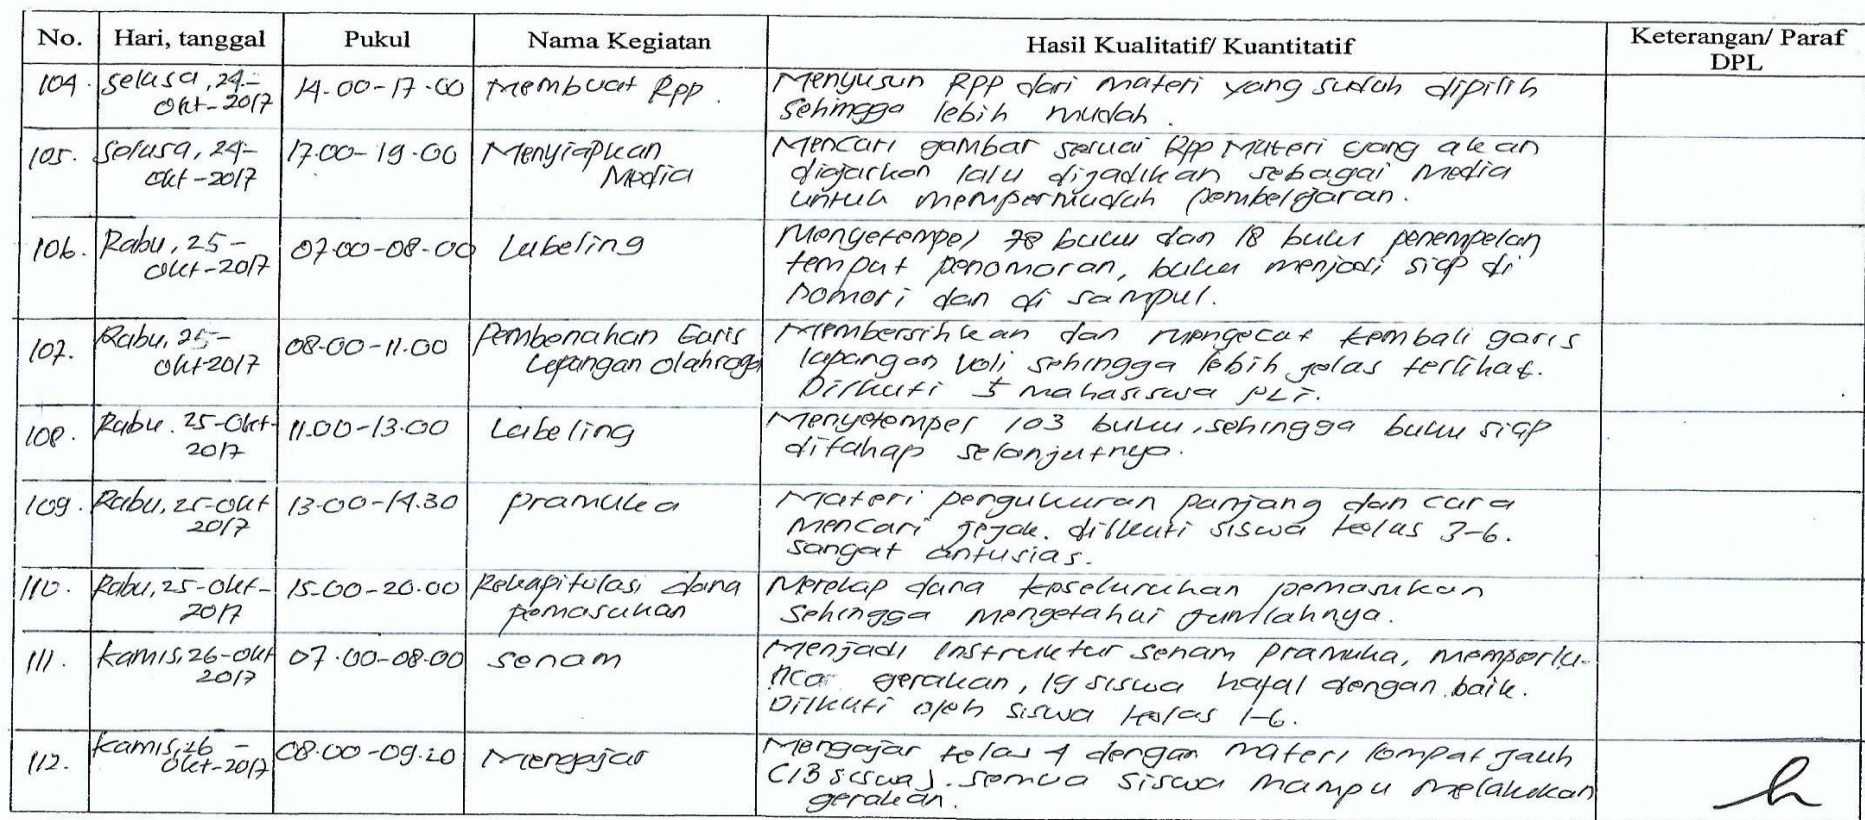 No. Hari, tanggal Pukul Nama Kegiatan Hasil Kualitatif/ Kuantitatif Keterangan/ Paraf DPL
104. Selasa, 24- 14.00-17.00 Membuat Rpp. Menyusun RPP dari materi yang sudah dipilih
Okt-2017 sehingga lebih mudah.
105. Selasa, 24- 17.00-19.00 Menyiapkan Mencari gambar sesuai Rpp Materi yang akan
Okt-2017 Media diajarkan lalu dijadikan sebagai media
untuk mempermudah pembelajaran.
106. Rabu, 25- 07.00-08.00 Labeling Menyetempel 78 buku dan 18 buku penempelan
Okt-2017 tempat penomoran, buku menjadi siap di
nomori dan di sampul.
107. Rabu, 25- 08.00-11.00 Pembenahan Garis Membersihkan dan mengecat kembali garis
Okt-2017 Lapangan Olahraga lapangan voli sehingga lebih jelas terlihat.
Diikuti 5 mahasiswa PLT.
108. Rabu. 25-Okt- 11.00-13.00 Labeling Menyetempel 103 buku, sehingga buku siap
2017 ditahap selanjutnya.
109. Rabu, 25-Okt 13.00-14.30 pramuka Materi pengukuran panjang dan cara
2017 mencari jejak. diikuti siswa kelas 3-6.
sangat antusias.
110. Rabu, 25-Okt- 15.00-20.00 Rekapitulasi dana Merekap dana keseluruhan pemasukan
2017 pemasukan sehingga mengetahui jumlahnya.
111. Kamis, 26-Okt 07.00-08.00 Senam Menjadi Instruktur senam pramuka, memperla-
2017 nca gerakan, 19 siswa hafal dengan baik.
Diikuti oleh siswa kelas 1-6.
112. Kamis, 26- 08.00-09.20 Mengajar Mengajar kelas 4 dengan materi lompat jauh
Okt-2017 (13 siswa). semua siswa mampu melakukan
gerakan.